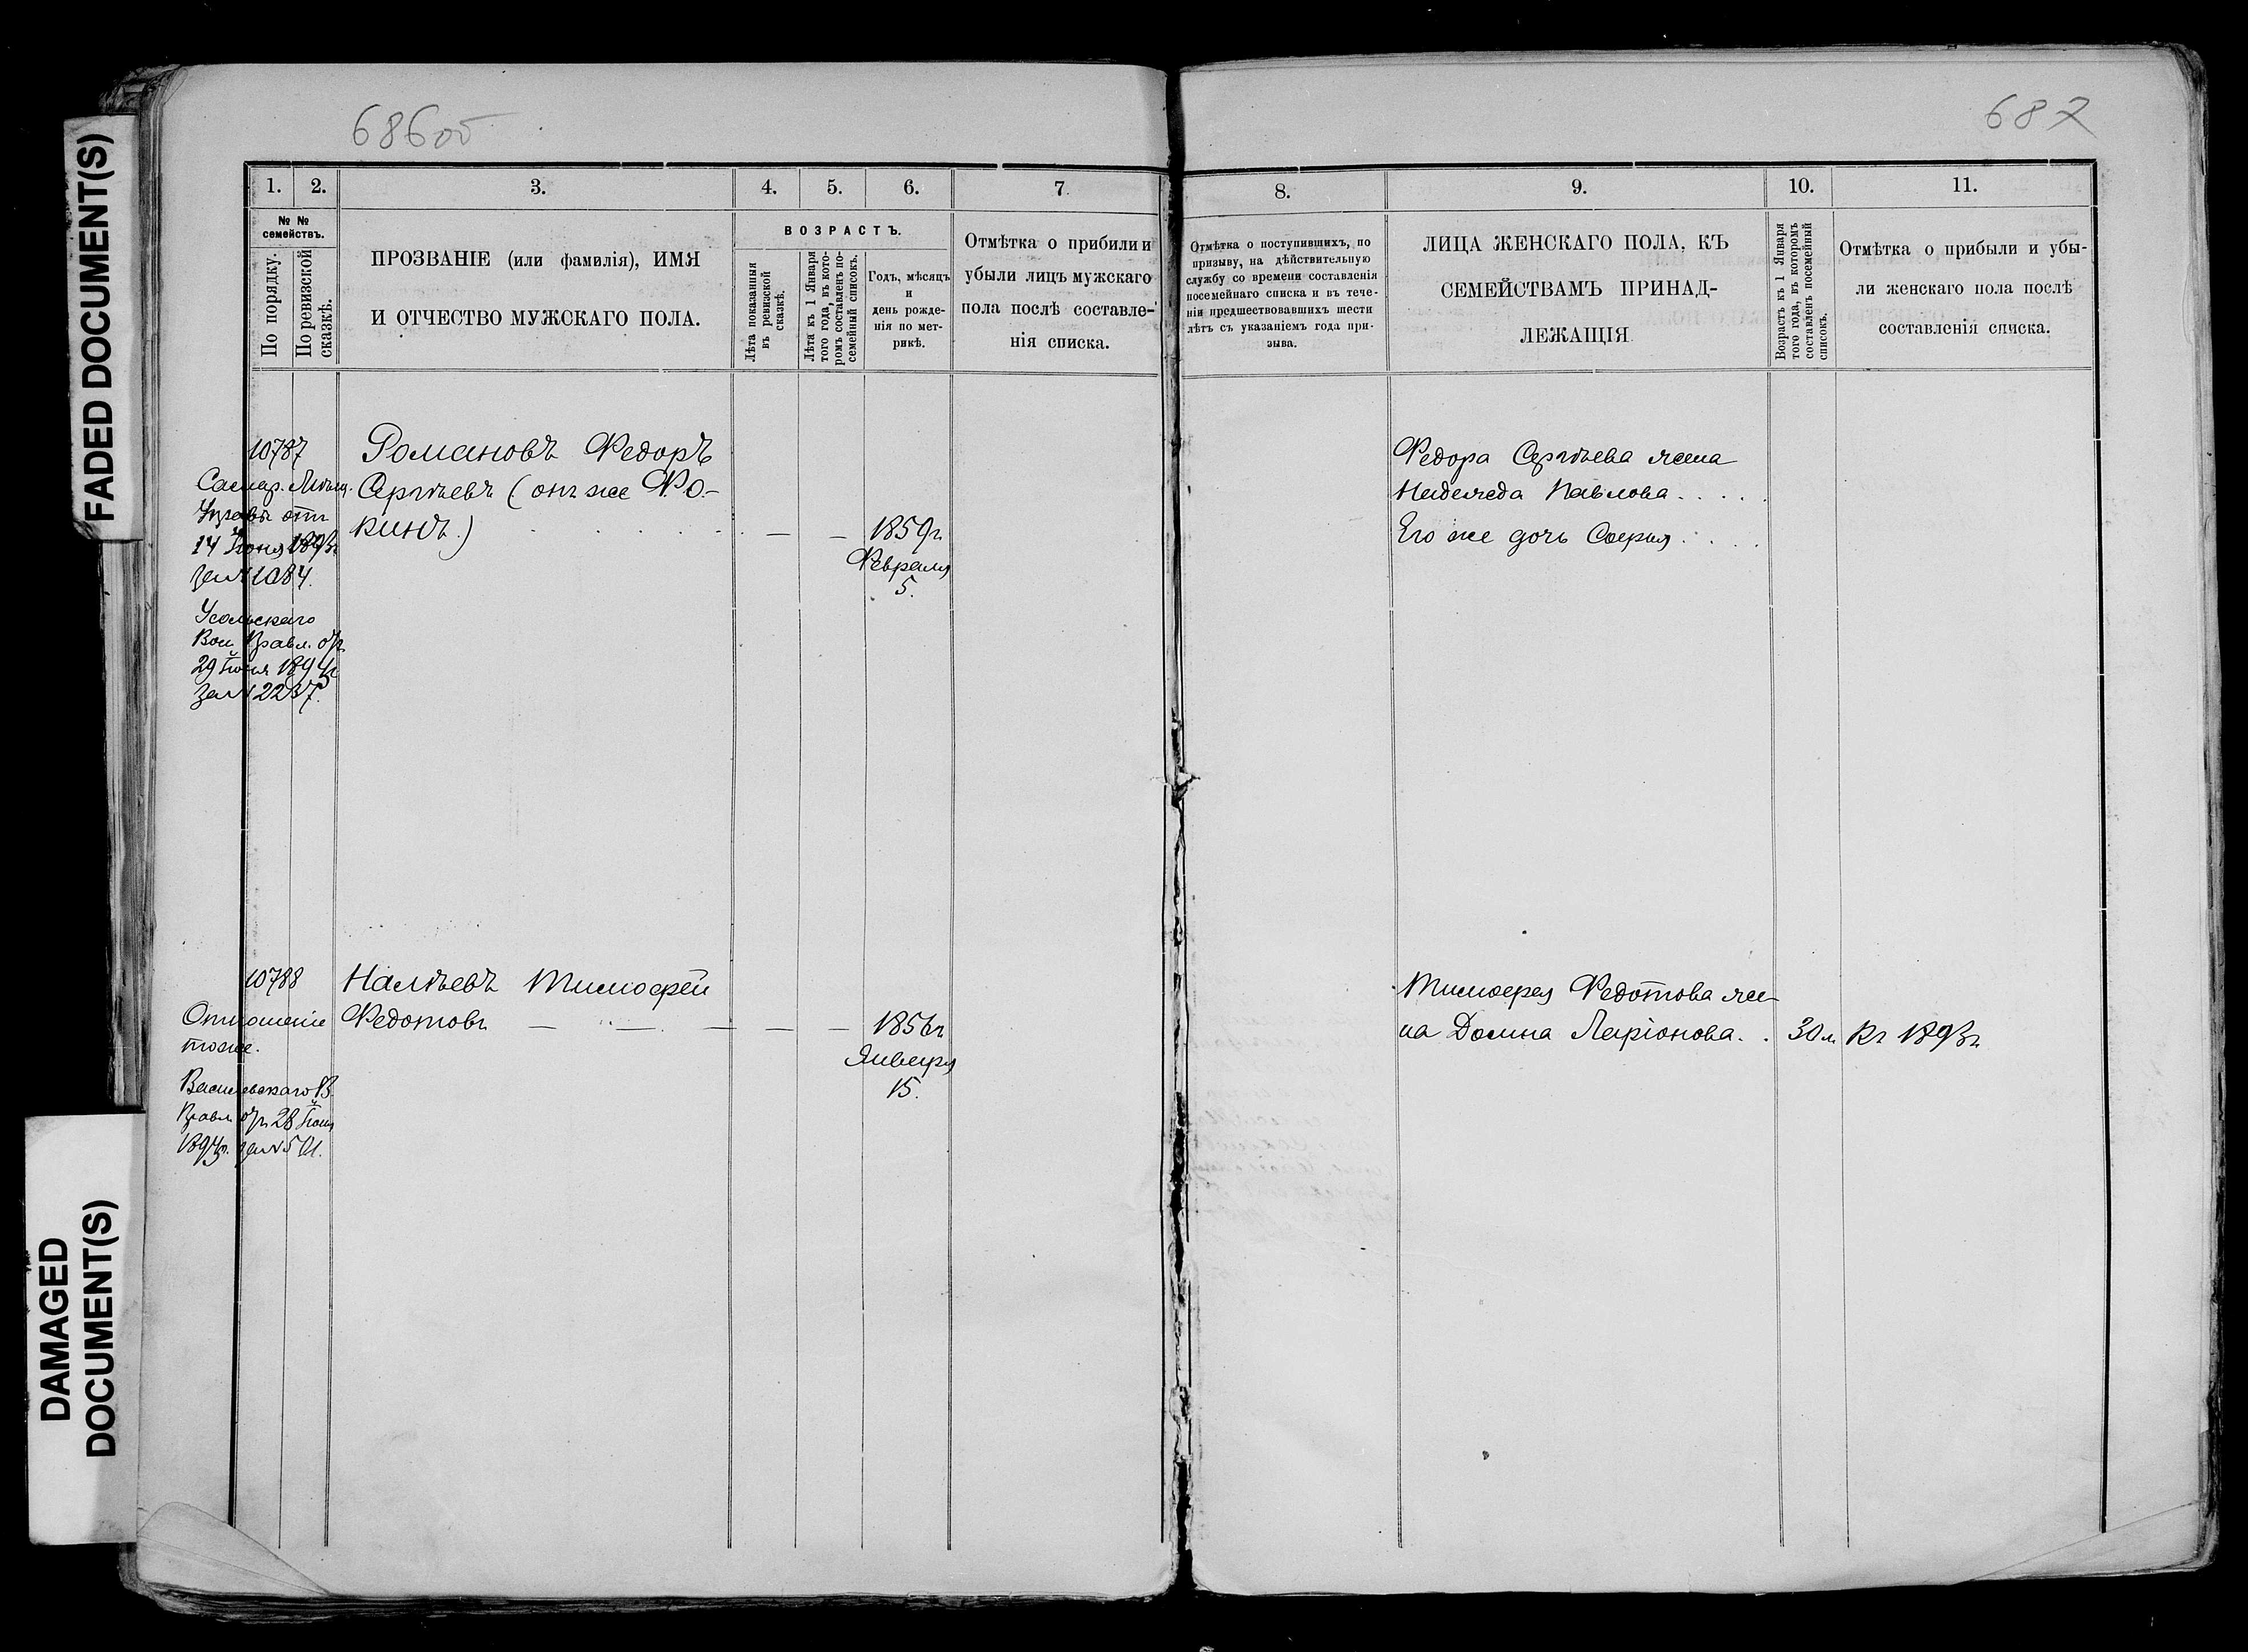 686об
687
FADED DOCUMENT(S)
DAMAGED
DOCUMENT(S)
1.
2.
3.
4.
5.
6.
7.
8.
9.
10.
11.
№ №
семействъ.
По порядку.
По ревизской
сказкѣ.
ПРОЗВАНІЕ (или фамилія), ИМЯ
И ОТЧЕСТВО МУЖСКАГО ПОЛА.
ВОЗРАСТЪ.
Лѣта показанныя
въ ревизской
сказкѣ.
Лѣта къ 1 Января
того года, въ кото-
ромъ составленъ по-
семейный списокъ.
Годъ, мѣсяцъ
и
день рожде-
нія по мет-
рикѣ.
Отмѣтка о прибили и
убыли лицъ мужскаго
пола послѣ составле-
нія списка.
Отмѣтка о поступившихъ, по
призыву, на дѣйствительную
службу со времени составленія
посемейнаго списка и въ тече-
ніи предшествовавшихъ шести
лѣтъ съ указаніемъ года при-
зыва.
ЛИЦА ЖЕНСКАГО ПОЛА, КЪ
СЕМЕЙСТВАМЪ ПРИНАД-
ЛЕЖАЩІЯ
Возрастъ къ 1 Января
того года, въ которомъ
составленъ посемейный
списокъ.
Отмѣтка о прибыли и убы-
ли женскаго пола послѣ
составленія списка.
10787
Самар. Мѣщ.
Управы отъ
14 Іюня 1893г
за № 1084.
Усольскаго
Вол. Правл. отъ
29 Іюня 1894г
за № 2237.
Романовъ Федоръ
Сергѣевъ (онъ же Фо-
кинъ.)
1859г.
Февраля
5.
Федора Сергѣева жена
Надежда Павлова.....
Его же дочь Софья....
10788
Отношеніе
тоже.
Васильевскаго В.
Правл. отъ 28 Іюня
Налѣевъ Тимофей
Федотовъ
1856г.
Января
15.
Тимофея Федотова же-
на Домна Ларіонова..
30 л.
Къ 1893г.